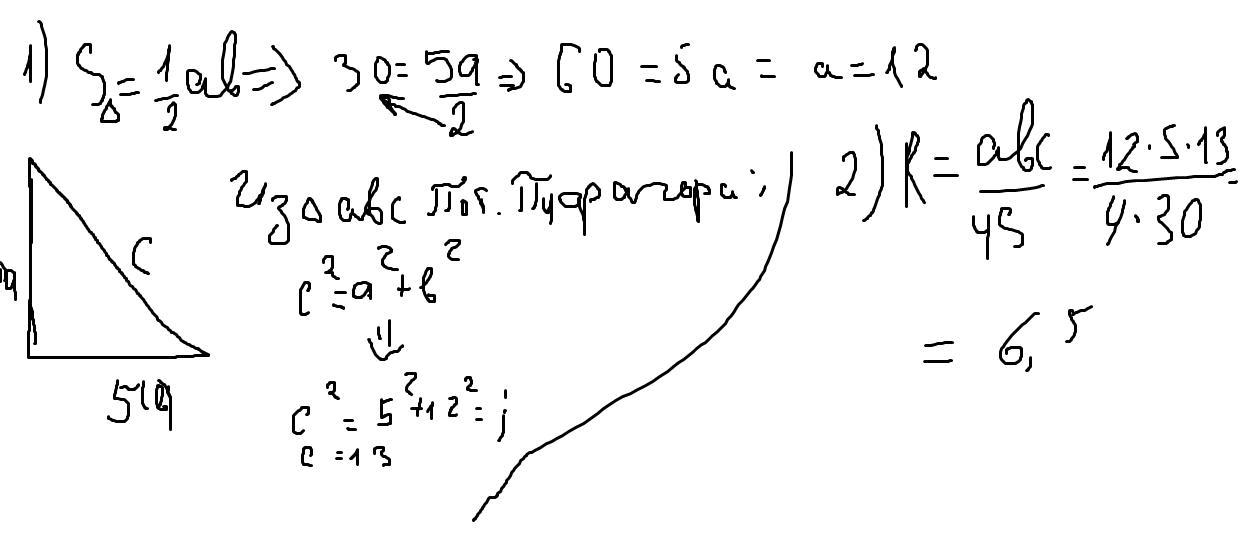 1) S△ = 1/2 ab => 30 = 5a/2 => 60 = 5a = a = 12
Из △ авс По т. Пифагора:
c² = a² + b²
⇓
c² = 5² + 12² = j
c = 13
c
a
5
2) R = abc/4S = 12·5·13/4·30 =
= 6,5